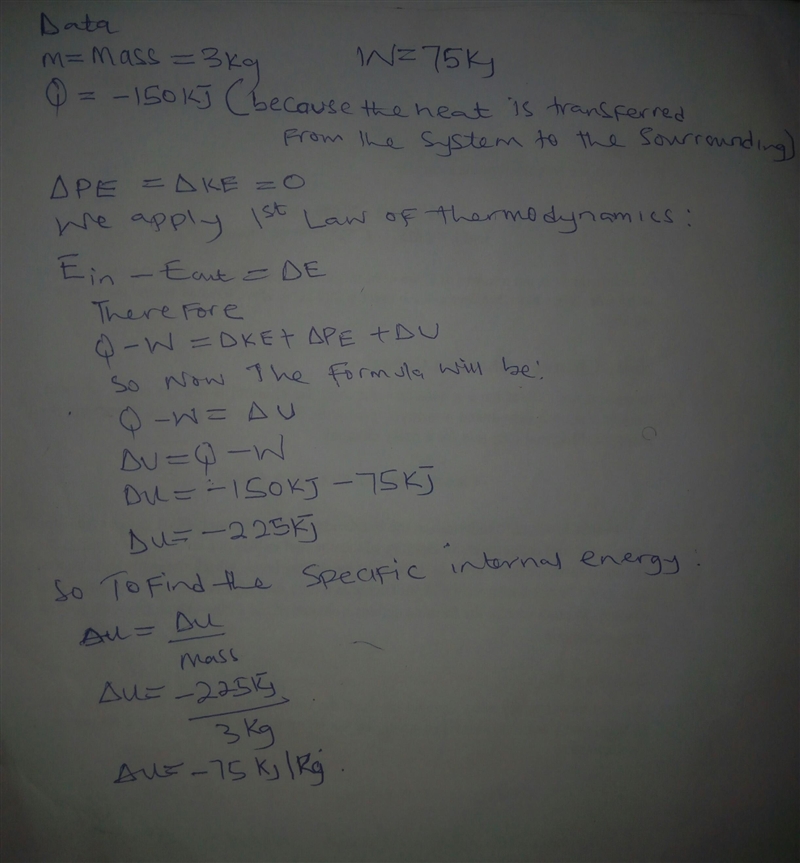 Data
m = Mass = 3kg W = 75Kj
Q = -150KJ (because the heat is transferred
From the System to the Sourrounding)
ΔPE = ΔKE = 0
We apply 1st Law of thermodynamics:
Ein - Eout = ΔE
Therefore
Q - W = ΔKE + ΔPE + ΔU
So Now The Formula will be:
Q - W = ΔU
ΔU = Q - W
Δu = -150KJ - 75KJ
Δu = -225KJ
So To Find the Specific internal energy:
Δu = Δu
mass
Δu = -225Kj
3Kg
Δu = -75 Kj/Kg.